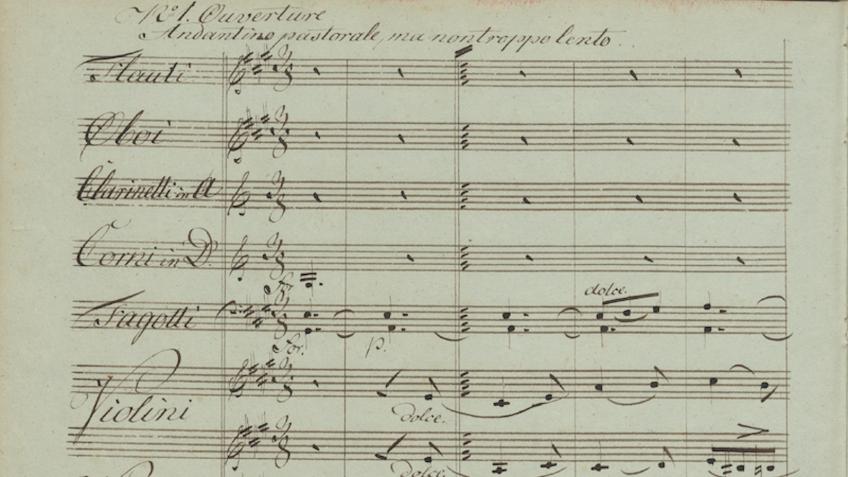 No 1. Ouverture
Andantino pastorale, ma non troppo lento.
Flauti
Oboi
Clarinetti in A
Corni in D.
for
dolce.
Fagotti
for.
p.
Violini
dolce.
dolce.